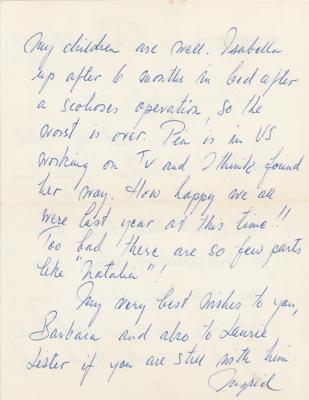 My children are well. Isabella
up after 6 months in bed after
a scolioses operation, so the
worst is over. Pia is in US
working on TV and I think found
her way. How happy we all
were last year at this time!!
Too bad there are so few parts
like "Natalia"!
My very best wishes to you,
Barbara and also to Laurie
Lister if you are still with him.
Ingrid